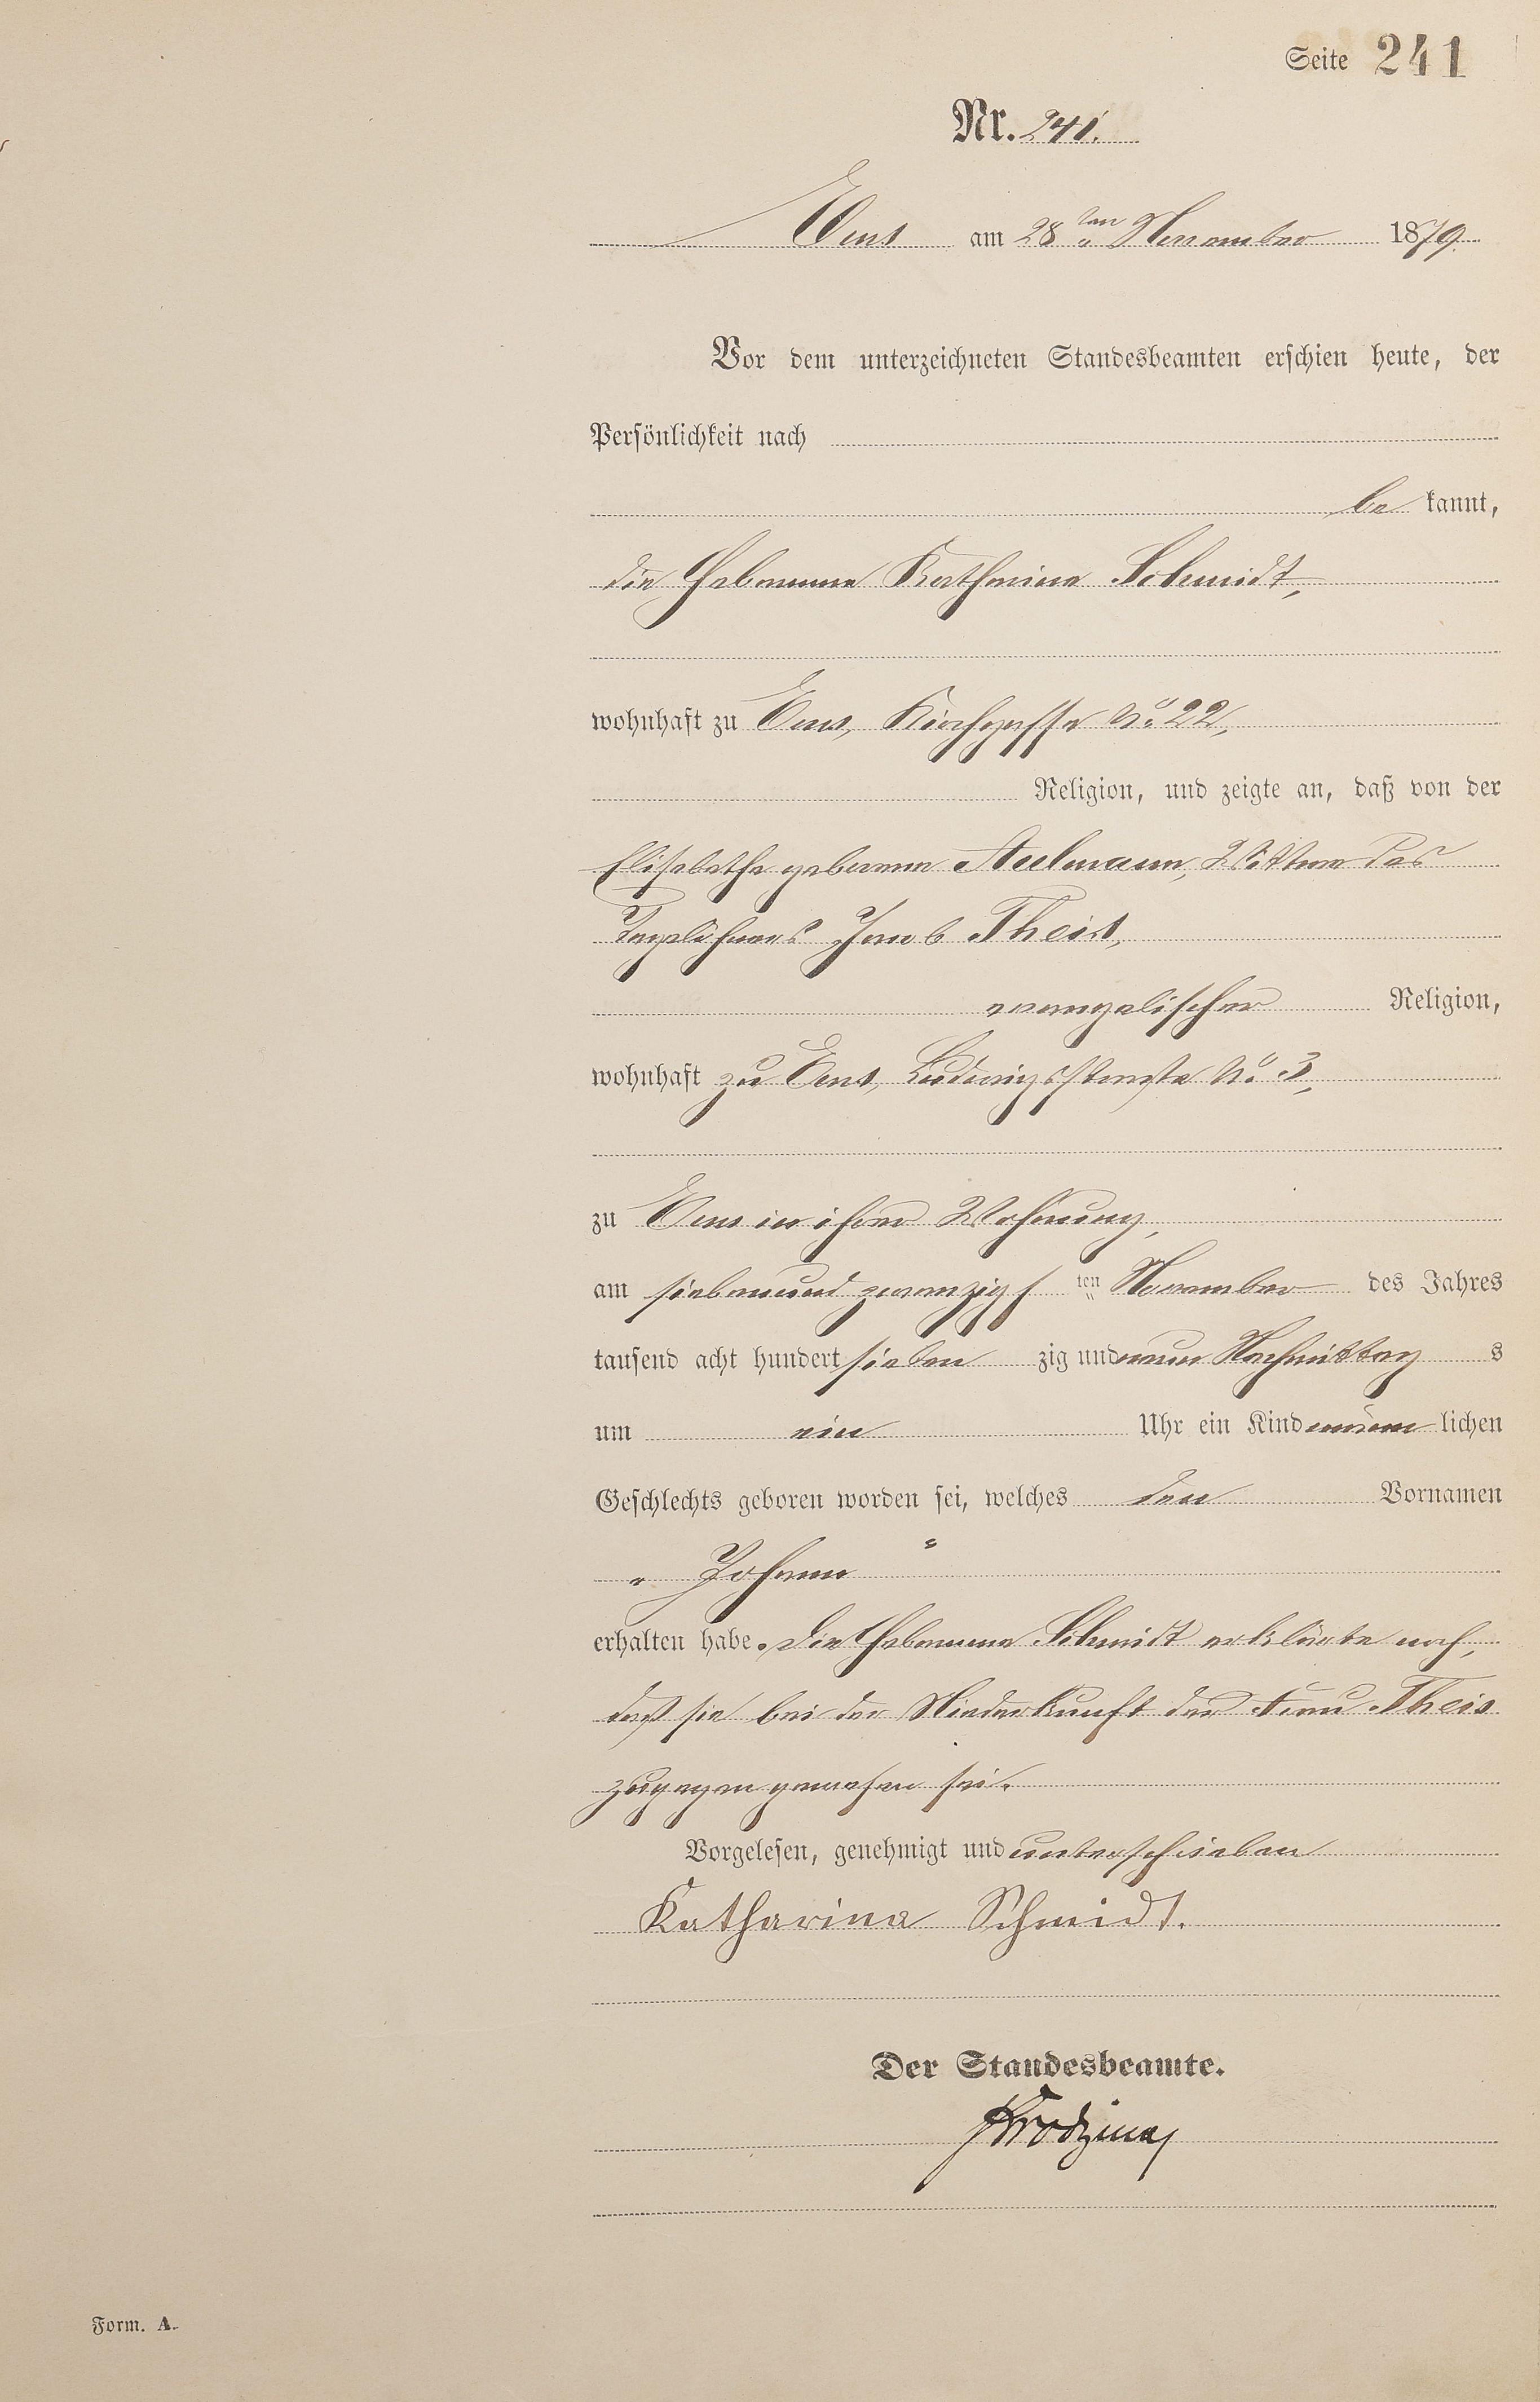 Seite 241
Nr. 241.
Ems am 28ten November 1879
Vor dem unterzeichneten Standesbeamten erschien heute, der
Persönlichkeit nach
be kannt,
die Hebamme Katharina Schmidt,
wohnhaft zu Ems, Kirchgasse No 22,
Religion, und zeigte an, daß von der
Elisabetha geborenen Aulmann, Wittwe des
Taglöhners Jacob Theis,
evangelischer Religion,
wohnhaft zu Ems, Ludwigsstraße No 3,
zu Ems in ihrer Wohnung,
am siebenundzwanzigs ten November des Jahres
tausend acht hundert sieben zig und neun Nachmittag s
um ein Uhr ein Kind männ lichen
Geschlechts geboren worden sei, welches den Vornamen
" Johann "
erhalten habe. Die Hebamme Schmidt erklärte noch,
daß sie bei der Niederkunft der Frau Theis
zugegen gewesen sei.
Vorgelesen, genehmigt und unterschrieben
Katharina Schmidt.
Der Standesbeamte.
Form. A.